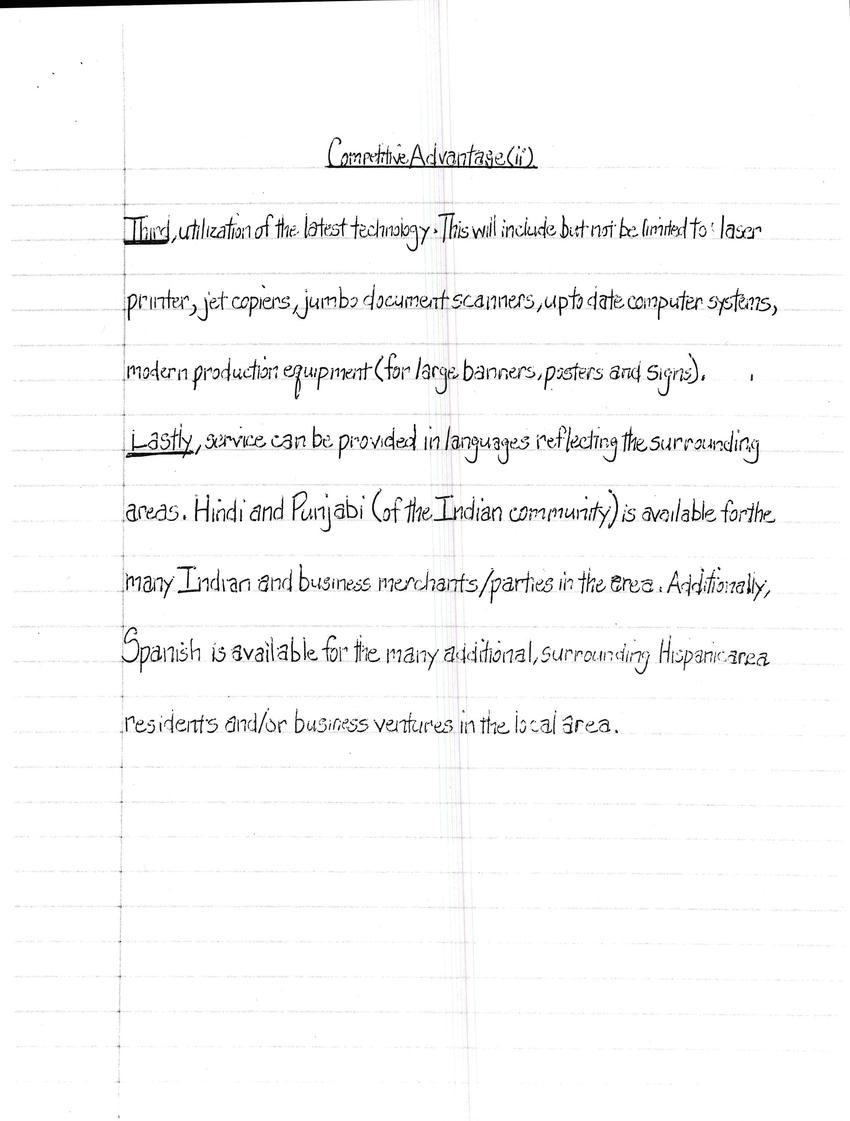 Competitive Advantage (ii)
Third, utilization of the latest technology. This will include but not be limited to: laser
printer, jet copiers, jumbo document scanners, up to date computer systems,
modern production equipment (for large banners, posters and signs).
Lastly, service can be provided in languages reflecting the surrounding
areas. Hindi and Punjabi (of the Indian community) is available for the
many Indian and business merchants/parties in the area. Additionally,
Spanish is available for the many additional, surrounding Hispanic area
residents and/or business ventures in the local area.